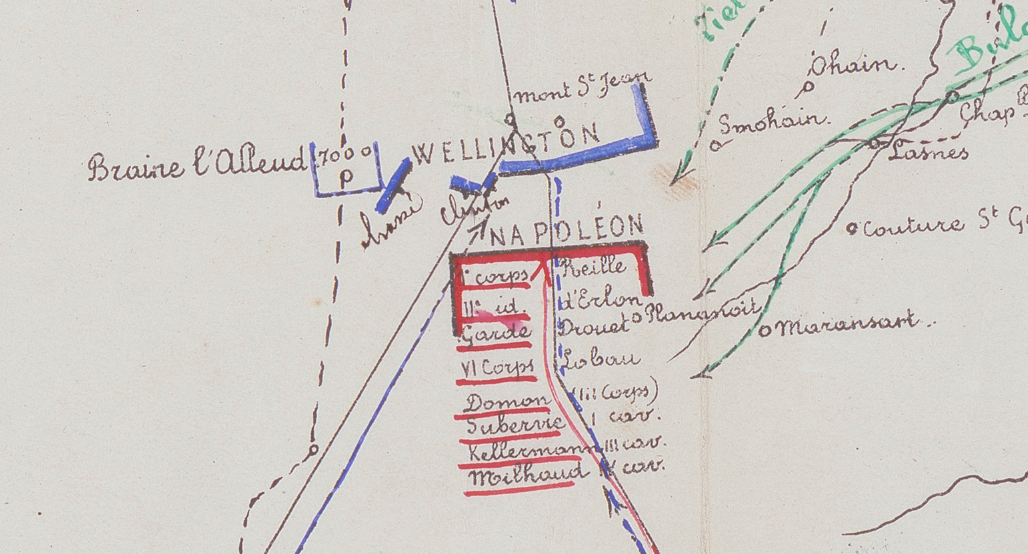 Ohain.
mont St Jean
Smohain.
Chap
WELLINGTON
Braine l'Alleud
7000
P
Lasnes
Chassé
Clinton
Couture St G
NAPOLÉON
I° corps Reille
II° id. d'Erlon
Garde Drouet
Plananoit
Maransart..
VI Corps Lobau
(III Corps)
Domon I cav.
Subervie
Kellermann III cav.
Milhaud IV cav.